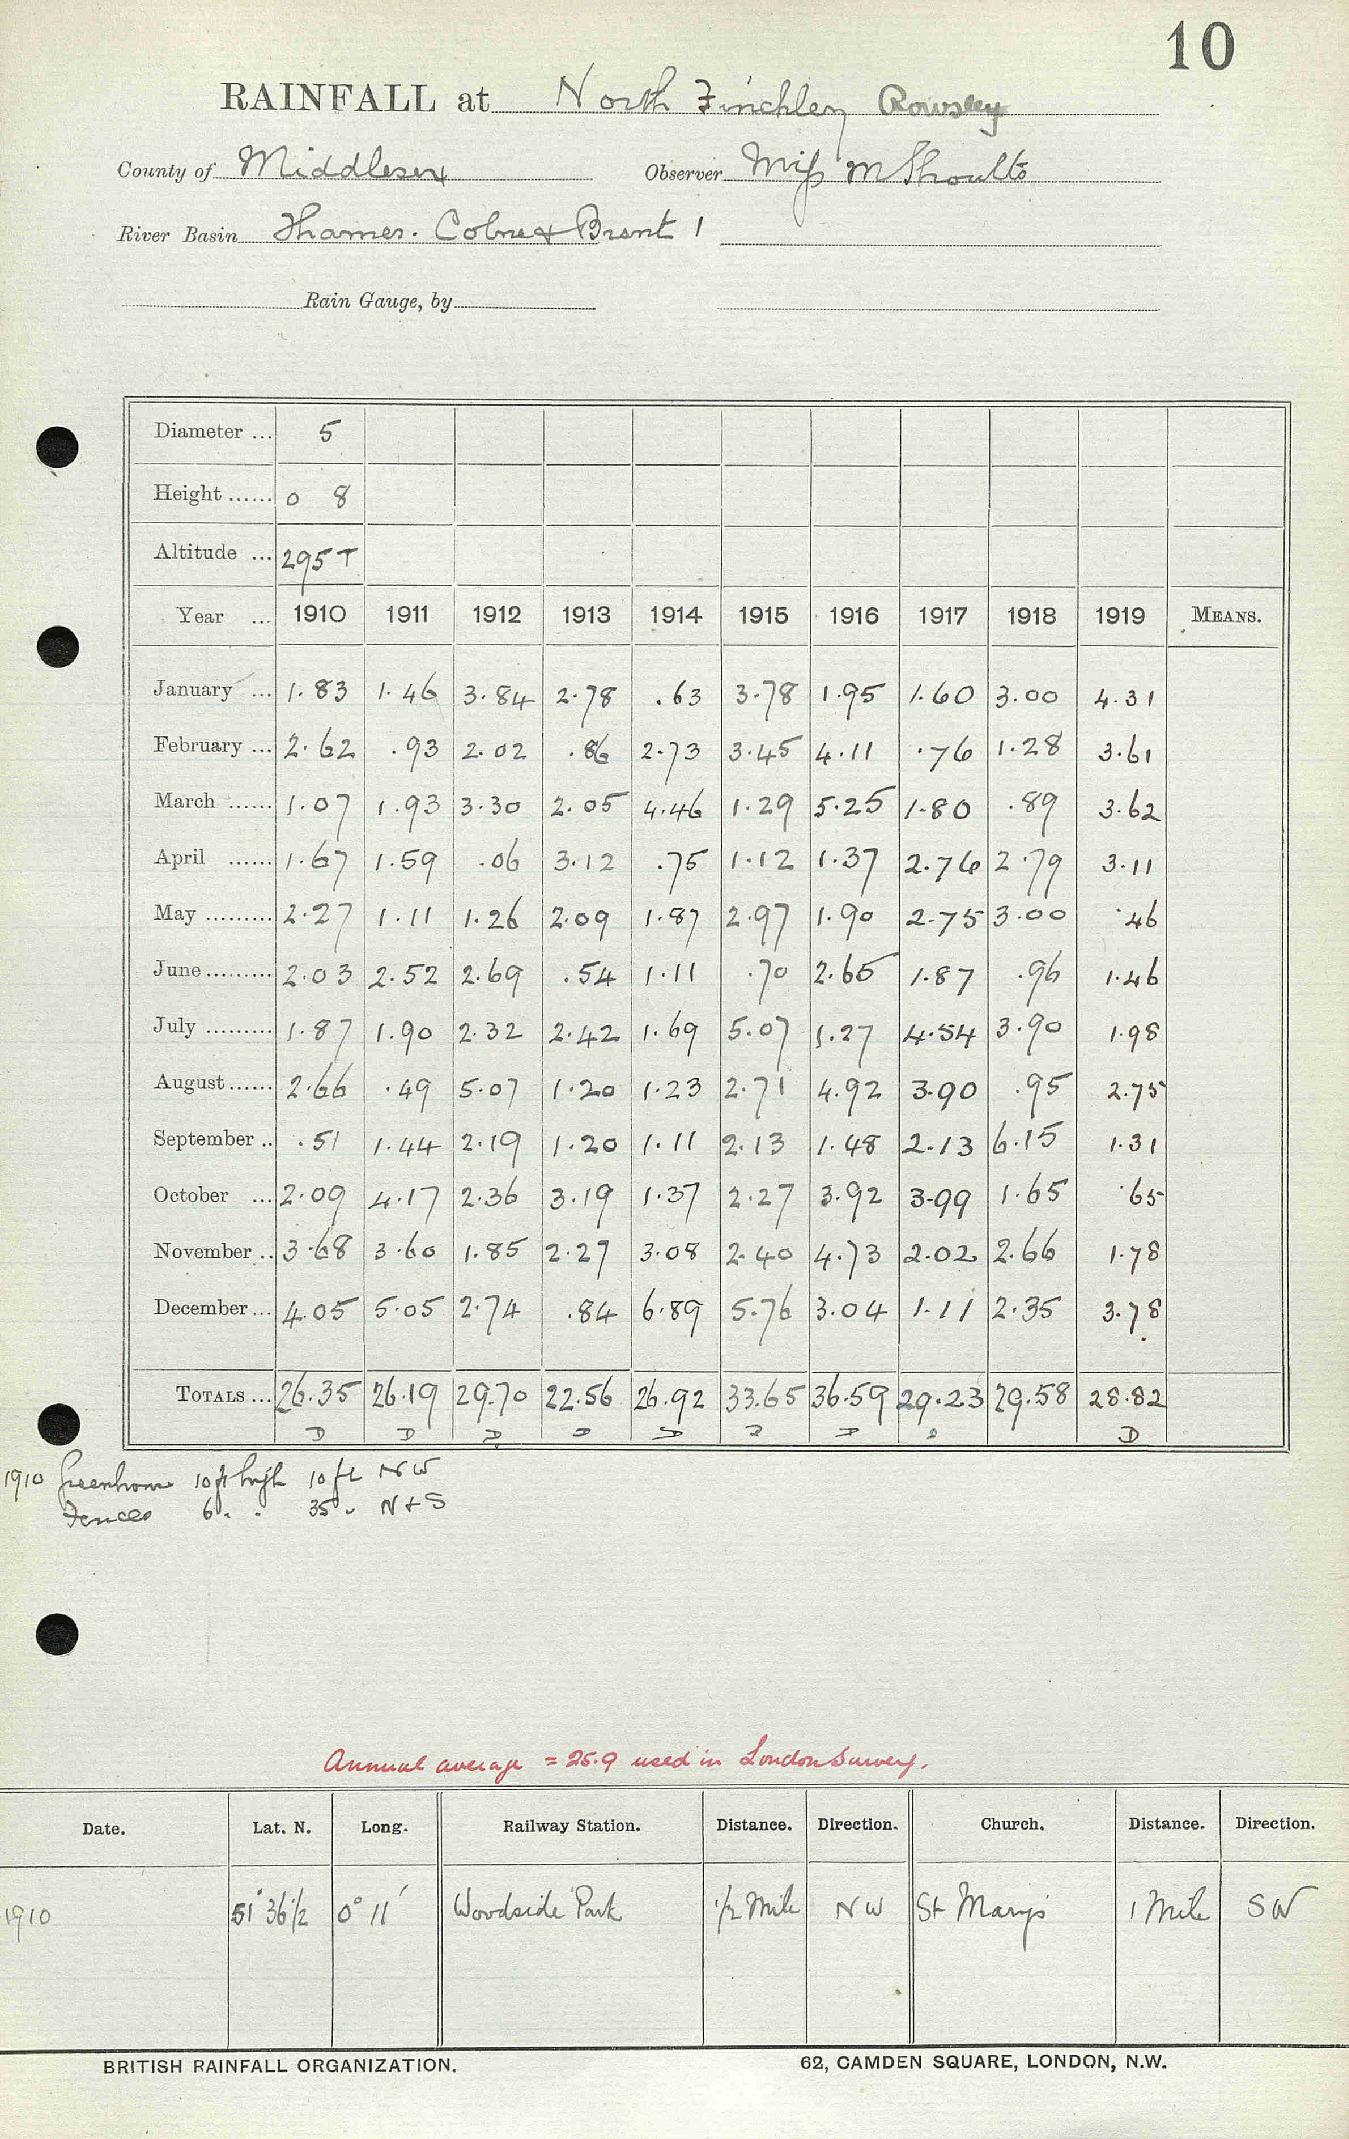 10
RAINFALL at North Finchley Rowsley
County of Middlesex Observer Miss M Shoults
River Basin Thames. Colne & Brent 1
Rain Gauge, by
Diameter ... 5
Height ...... 0 8
Altitude ... 295 T
Year ... 1910 1911 1912 1913 1914 1915 1916 1917 1918 1919 MEANS.
January ... 1.83 1.46 3.84 2.78 .63 3.78 1.95 1.60 3.00 4.31
February ... 2.62 .93 2.02 .86 2.73 3.45 4.11 .76 1.28 3.61
March ...... 1.07 1.93 3.30 2.05 4.46 1.29 5.25 1.80 .89 3.62
April ...... 1.67 1.59 .06 3.12 .75 1.12 1.37 2.76 2.79 3.11
May ......... 2.27 1.11 1.26 2.09 1.87 2.97 1.90 2.75 3.00 .46
June ......... 2.03 2.52 2.69 .54 1.11 .70 2.65 1.87 .96 1.46
July ......... 1.87 1.90 2.32 2.42 1.69 5.07 1.27 4.54 3.90 1.98
August ...... 2.66 .49 5.07 1.20 1.23 2.71 4.92 3.90 .95 2.75
September .. .51 1.44 2.19 1.20 1.11 2.13 1.48 2.13 6.15 1.31
October ... 2.09 4.17 2.36 3.19 1.37 2.27 3.92 3.99 1.65 .65
November .. 3.68 3.60 1.85 2.27 3.08 2.40 4.73 2.02 2.66 1.78
December ... 4.05 5.05 2.74 .84 6.89 5.76 3.04 1.11 2.35 3.78
TOTALS ... 26.35 26.19 29.70 22.56 26.92 33.65 36.59 29.23 29.58 28.82
D D D D D D D D D
1910 Greenhouse 10 ft high 10 ft NW
Fences 6 " " 35 " N + S
Annual average = 25.9 used in London Survey.
Date. Lat. N. Long. Railway Station. Distance. Direction. Church. Distance. Direction.
1910 51° 36 1/2 0° 11' Woodside Park 1/2 Mile NW St Mary's 1 Mile SW
BRITISH RAINFALL ORGANIZATION. 62, CAMDEN SQUARE, LONDON, N.W.